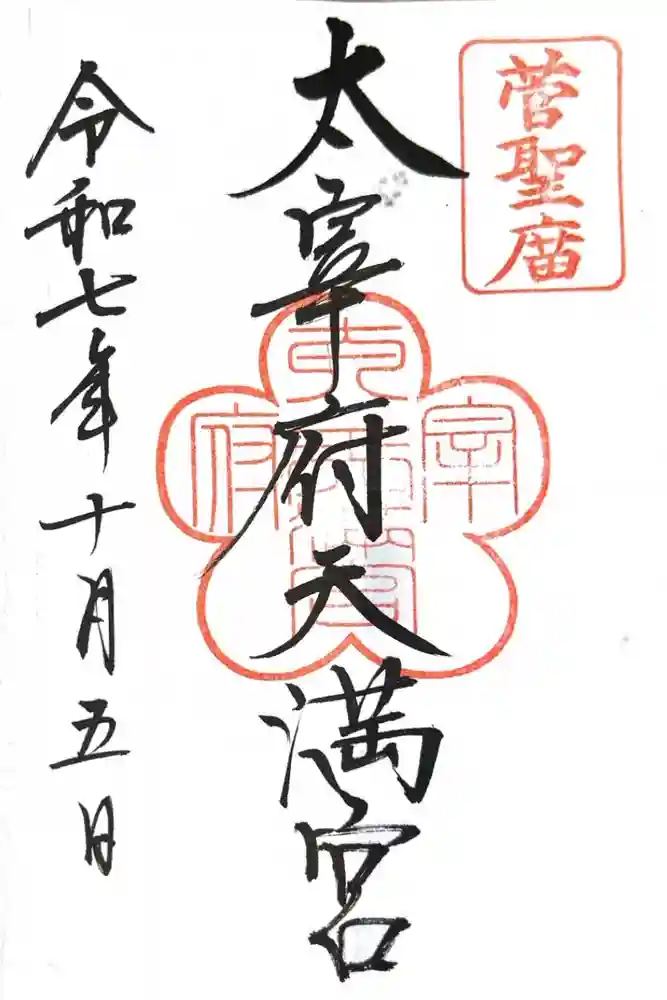 菅聖庿
太宰府天満宮
令和七年十月五日